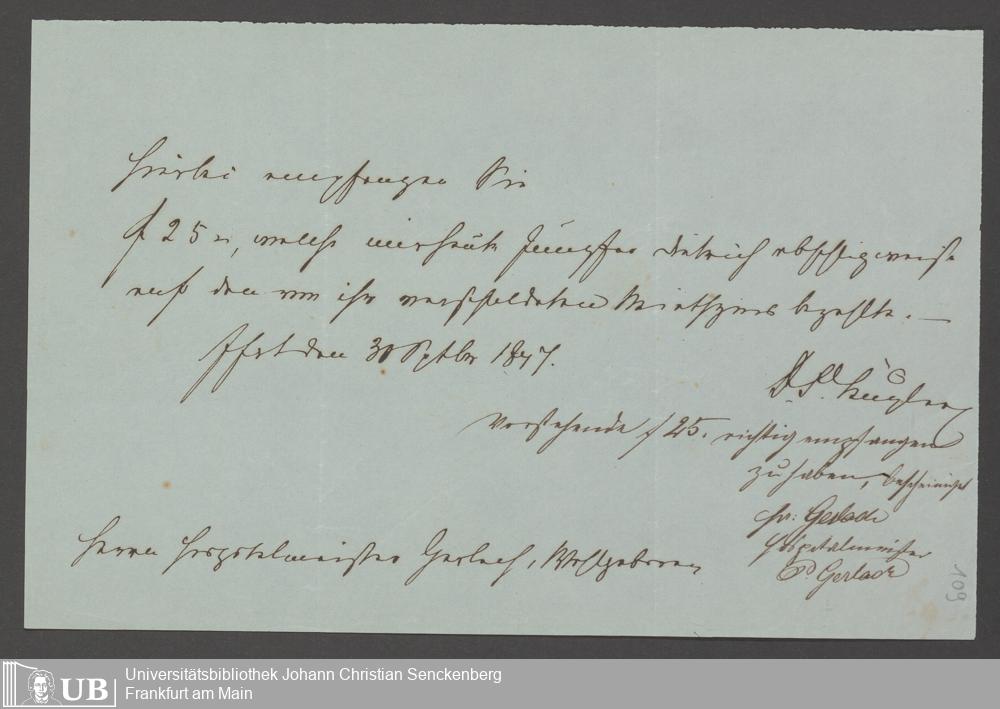 Hierbei empfangen Sie
f 25 –, welche mir heute Jungfer Dietrich abschlägig weise
auf den von ihr verschuldeten Miethzins bezahlte. —
Ffrt den 30 Sptbr 1847.
Dr. Kugler
Vorstehende f 25. richtig empfangen
zu haben, bescheinigt
Fr: Gerlach
Hospitalmeister
Gerlach
Herrn Hospitalmeister Gerlach, Wohlgeboren
109
UB
Universitätsbibliothek Johann Christian Senckenberg
Frankfurt am Main